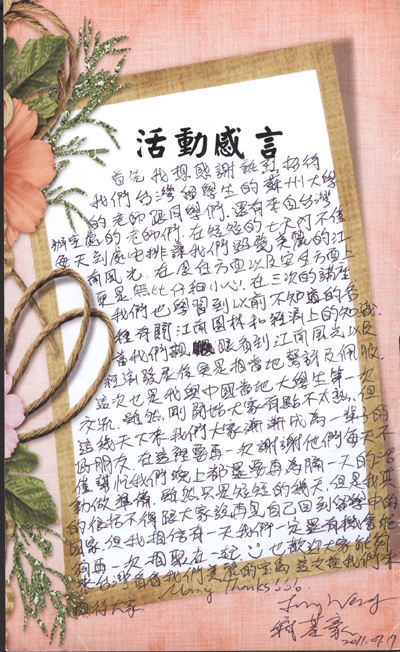 活動感言
首先我想感謝熱烈招待
我們台灣留學生的蘇州大學
的老師跟同學們.還有來自台灣
辦事處的老師們.在短短的七天內不僅
每天到處安排讓我們遊覽美麗的江
南風光.在食住方面以及安全方面上
更是無比仔細小心.在三次的講座
我們也學習到以前不知道的各
種有關江南園林和經濟上的知識.
當我們親眼看到江南風光以及
經濟發展後更是相當驚訝及佩服.
這次也是我與中國當地大學生第一次
交流.雖然剛開始大家有點不太熟,但
這幾天下來我們大家漸漸成為一輩子的
好朋友.在這裡要再一次謝謝他們每天不
僅幫忙我們晚上都還要再為隔一天的活
動做準備.雖然只是短短的幾天.但是我真
的很捨不得跟大家說再見自己回到留學中的
國家.但我相信有一天我們一定還有機會能
夠再一次相聚在一起 也歡迎大家能夠
來台灣看看我們美麗的宝島 這次換我們來
招待大家 Many thanks
2011.9.17